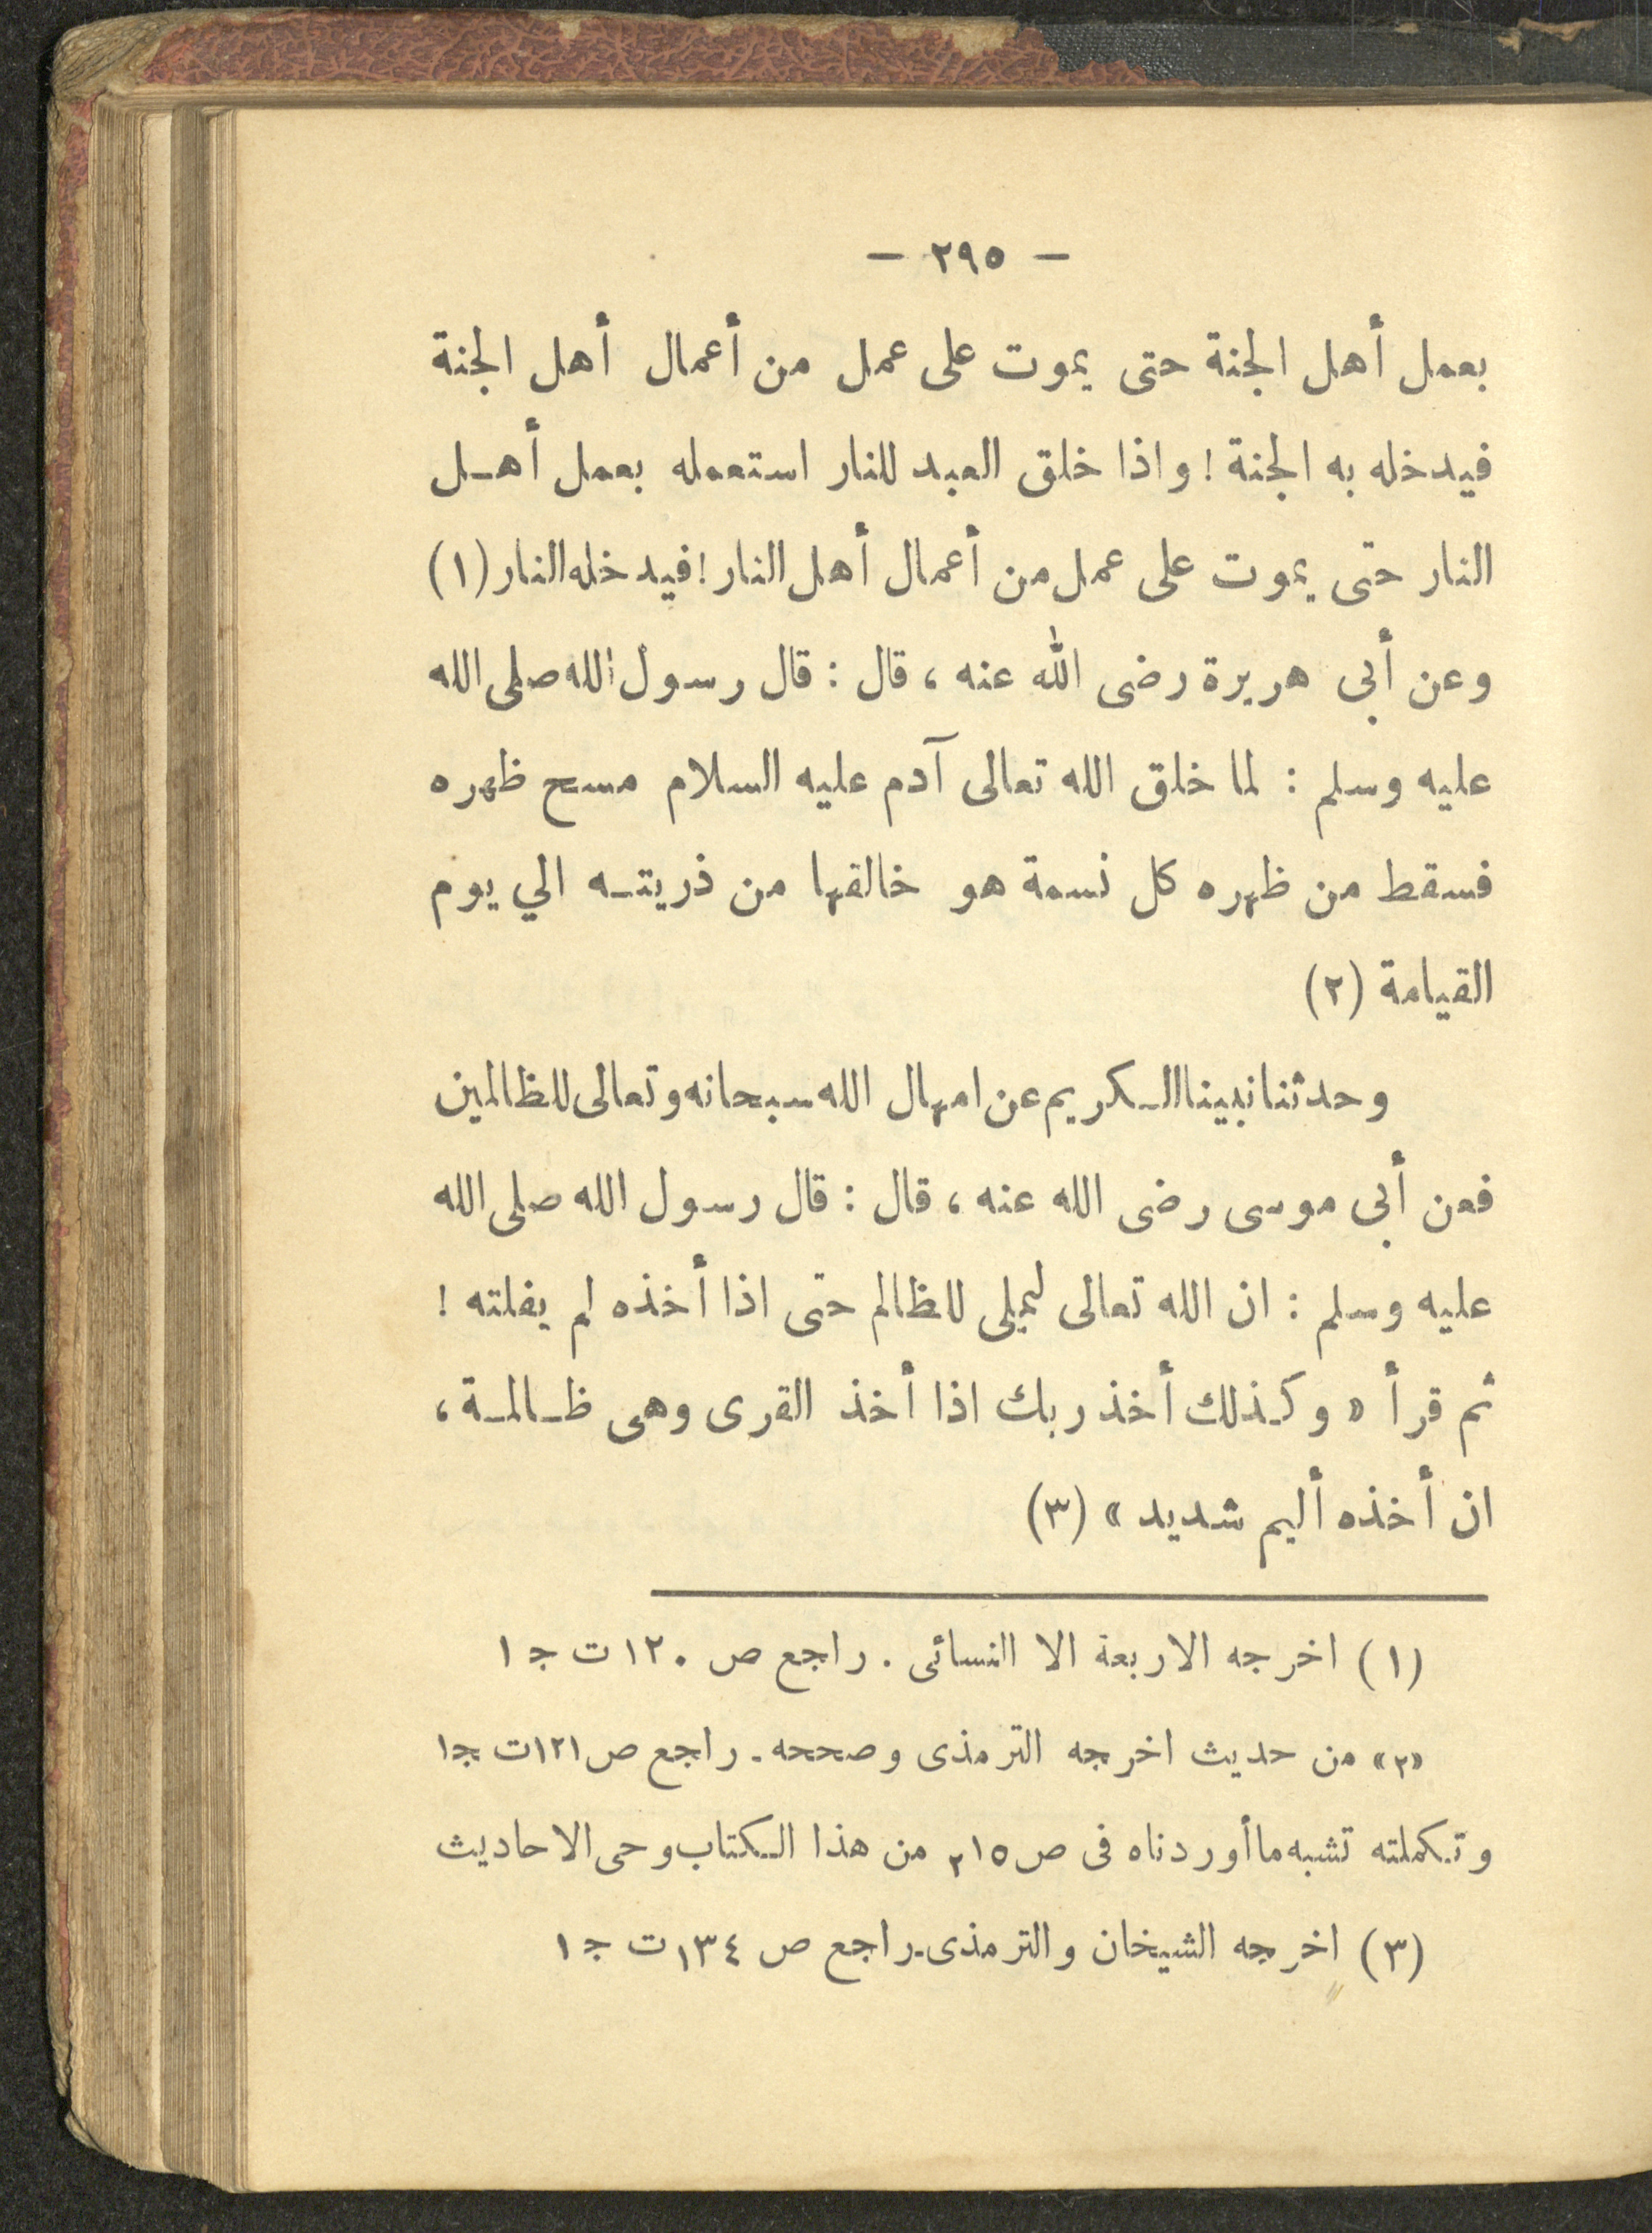 — ٢٩٥ —
بعمل أهل الجنة حتى يموت على عمل من أعمال أهل الجنة
فيدخله به الجنة ! واذا خلق العبد للنار استعمله بعمل أهـل
النار حتى يموت على عمل من أعمال أهل النار ! فيدخله النار (١)
وعن أبى هريرة رضى الله عنه ، قال : قال رسول الله صلى الله
عليه وسلم : لما خلق الله تعالى آدم عليه السلام مسح ظهره
فسقط من ظهره كل نسمة هو خالقها من ذريتـه الي يوم
القيامة (٢)
وحدثنا نبينا الـكريم عن امهال الله سبحانه وتعالى للظالمين
فعن أبى موسى رضى الله عنه ، قال : قال رسول الله صلى الله
عليه وسلم : ان الله تعالى ليملى للظالم حتى اذا أخذه لم يفلته !
ثم قرأ « وكـذلك أخذ ربك اذا أخذ القرى وهى ظـالمـة ،
ان أخذه أليم شديد » (٣)
(١) اخرجه الاربعة الا النسائى . راجع ص ١٢٠ ت جـ ١
«٢» من حديث اخرجه الترمذى وصححه ـ راجع ص ١٢١ ت جـ ١
وتـكملته تشبه ما أوردناه فى ص ٢١٥ من هذا الـكتاب وحى الاحاديث
(٣) اخرجه الشيخان والترمذى ـ راجع ص ١٣٤ ت جـ ١